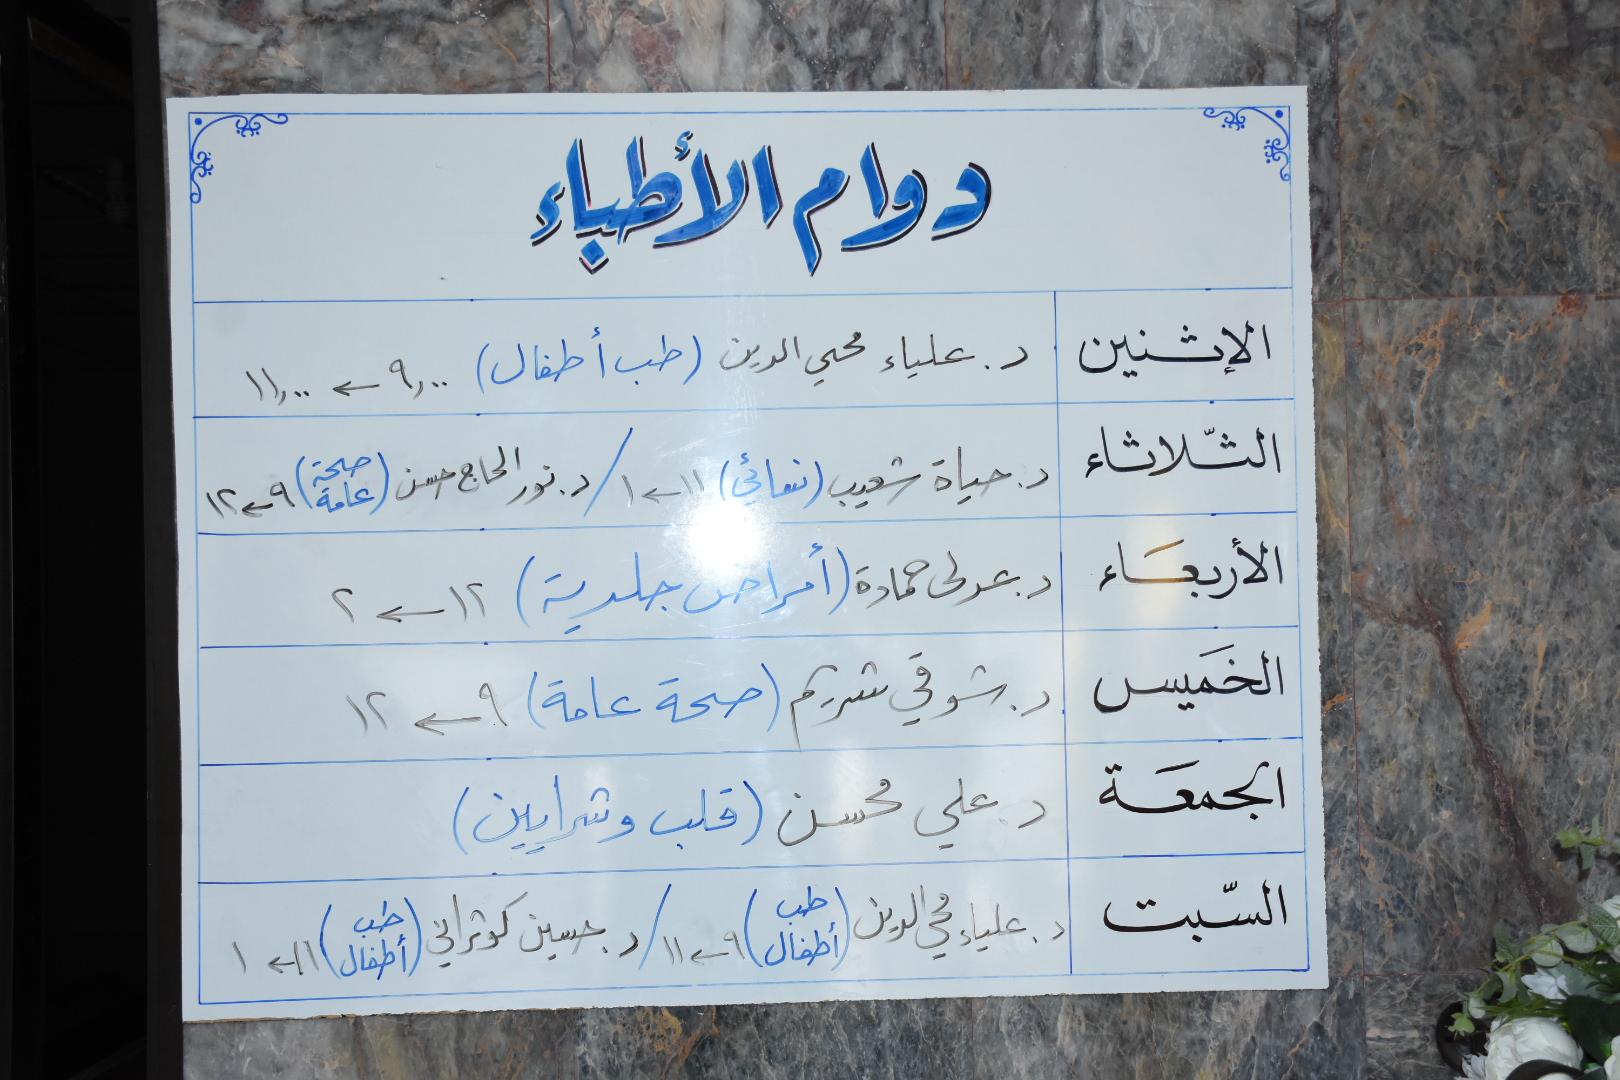 دوام الأطباء
الإثنين د. علياء محيي الدين (طب أطفال) ٩,٠٠ ← ١١,٠٠
الثّلاثاء د. حياة شعيب (نسائي) ١١ ← ١ / د. نور الحاج حسن (صحة عامة) ٩ ← ١٢
الأربعَاء د. عدلى حمادة (أمراض جلدية) ١٢ ← ٢
الخَميس د. شوقي شريم (صحة عامة) ٩ ← ١٢
الجمعَة د. علي محسن (قلب وشرايين)
السّبت د. علياء محي الدين (طب أطفال) ٩ ← ١١ / د. حسين كوثراني (طب أطفال) ١١ ← ١